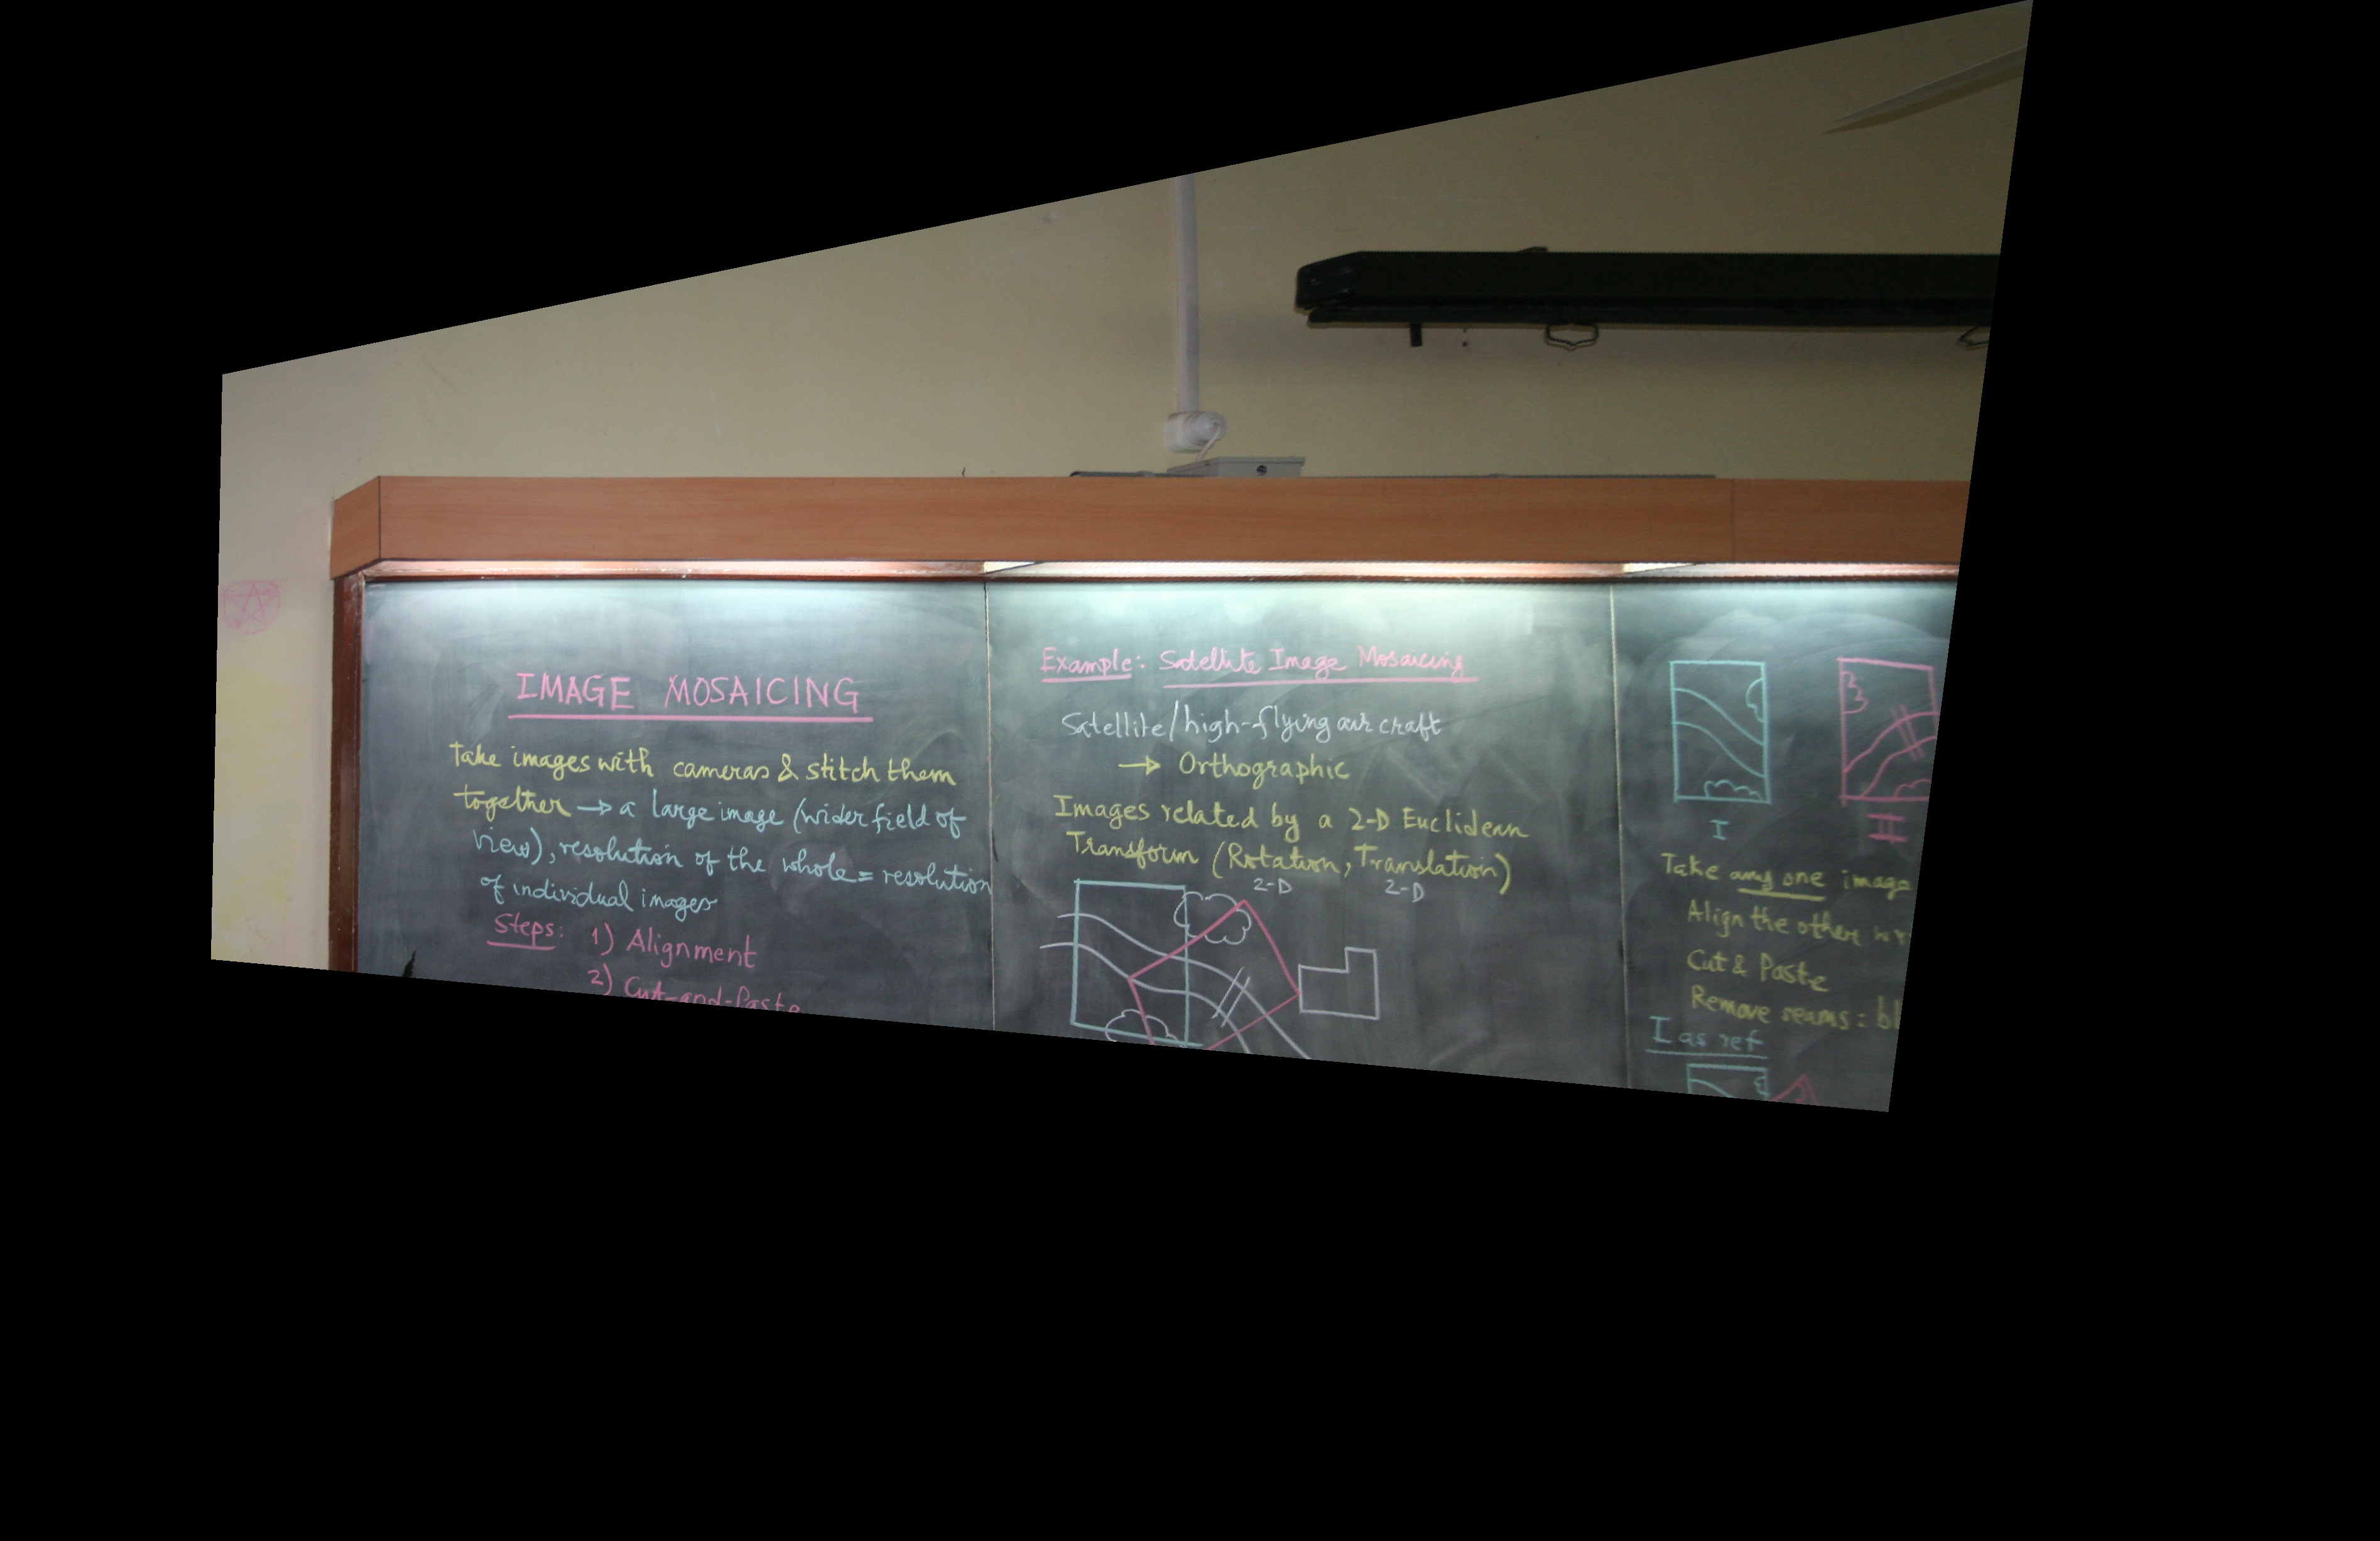 IMAGE MOSAICING
Take images with cameras & stitch them
together → a large image (wider field of
view), resolution of the whole = resolution
of individual images
Steps: 1) Alignment
2) Cut-and-Paste
Example: Satellite Image Mosaicing
Satellite/high-flying air craft
→ Orthographic
Images related by a 2-D Euclidean
Transform (Rotation, Translation)
2-D 2-D
I II
Take any one image
Align the other
Cut & Paste
Remove seams: bl
I as ref